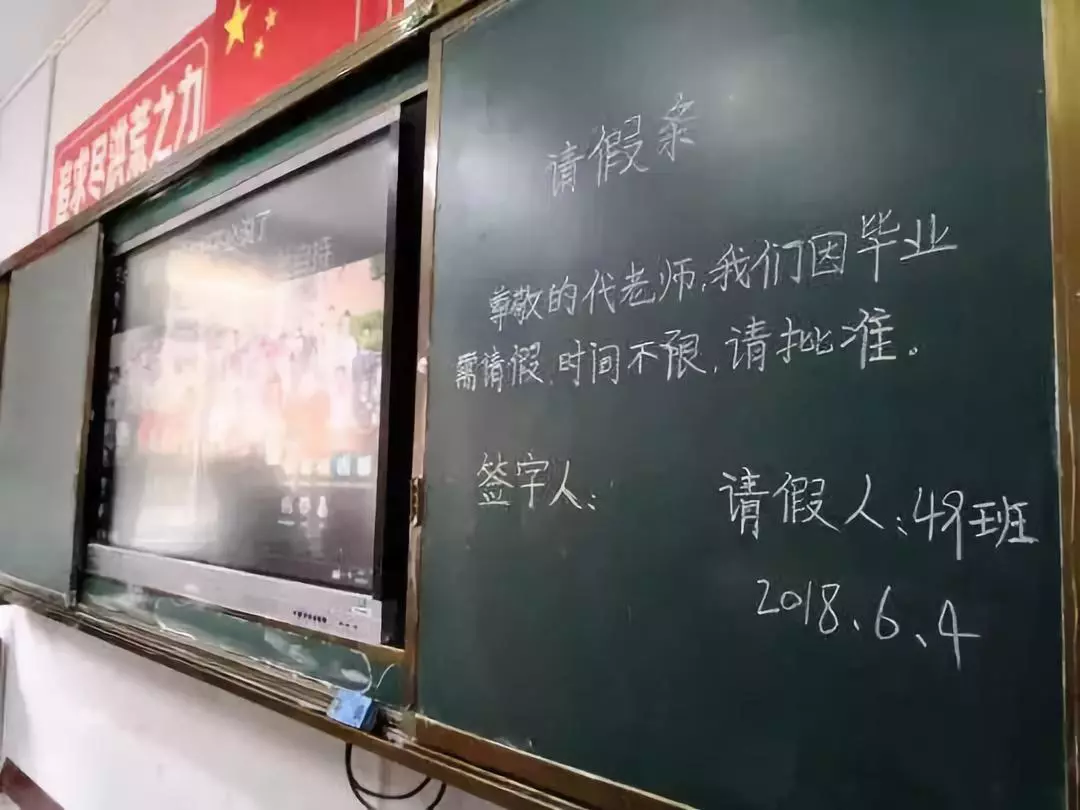 追求尽洪荒之力
请假条
尊敬的代老师,我们因毕业
需请假,时间不限,请批准。
签字人:
请假人:49班
2018、6、4